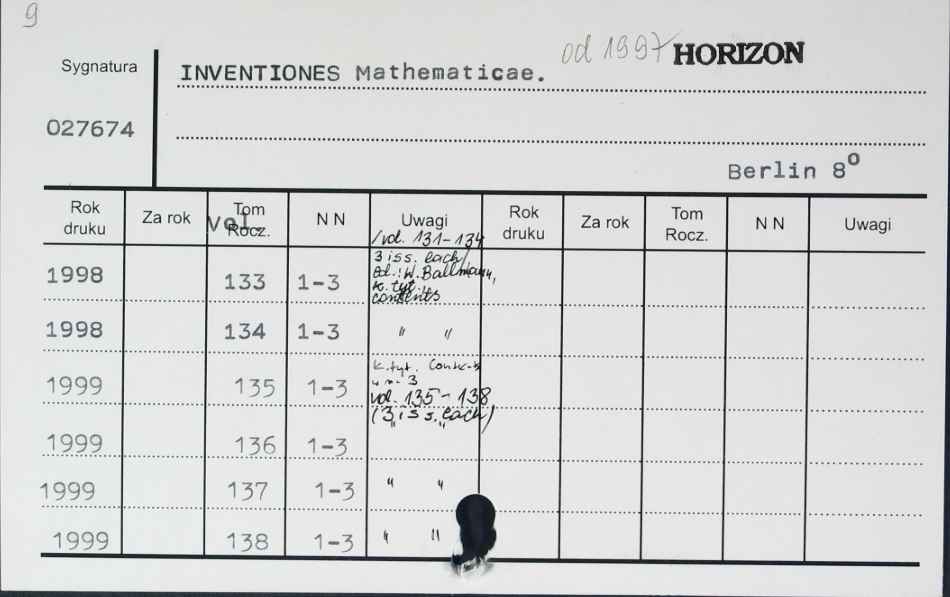 9
od 1997 HORIZON
Sygnatura
INVENTIONES Mathematicae.
027674
Berlin 8°
Rok druku Za rok Tom Rocz. vol. N N Uwagi Rok druku Za rok Tom Rocz. N N Uwagi
/vol. 131-134
3 iss. each/
Ed.: W. Ballmann,
k. tyt.
contents
1998 133 1-3
1998 134 1-3 " "
k. tyt.
3
vol. 135-138
(3 iss. each)
1999 135 1-3
1999 136 1-3 " "
1999 137 1-3 " "
1999 138 1-3 " "